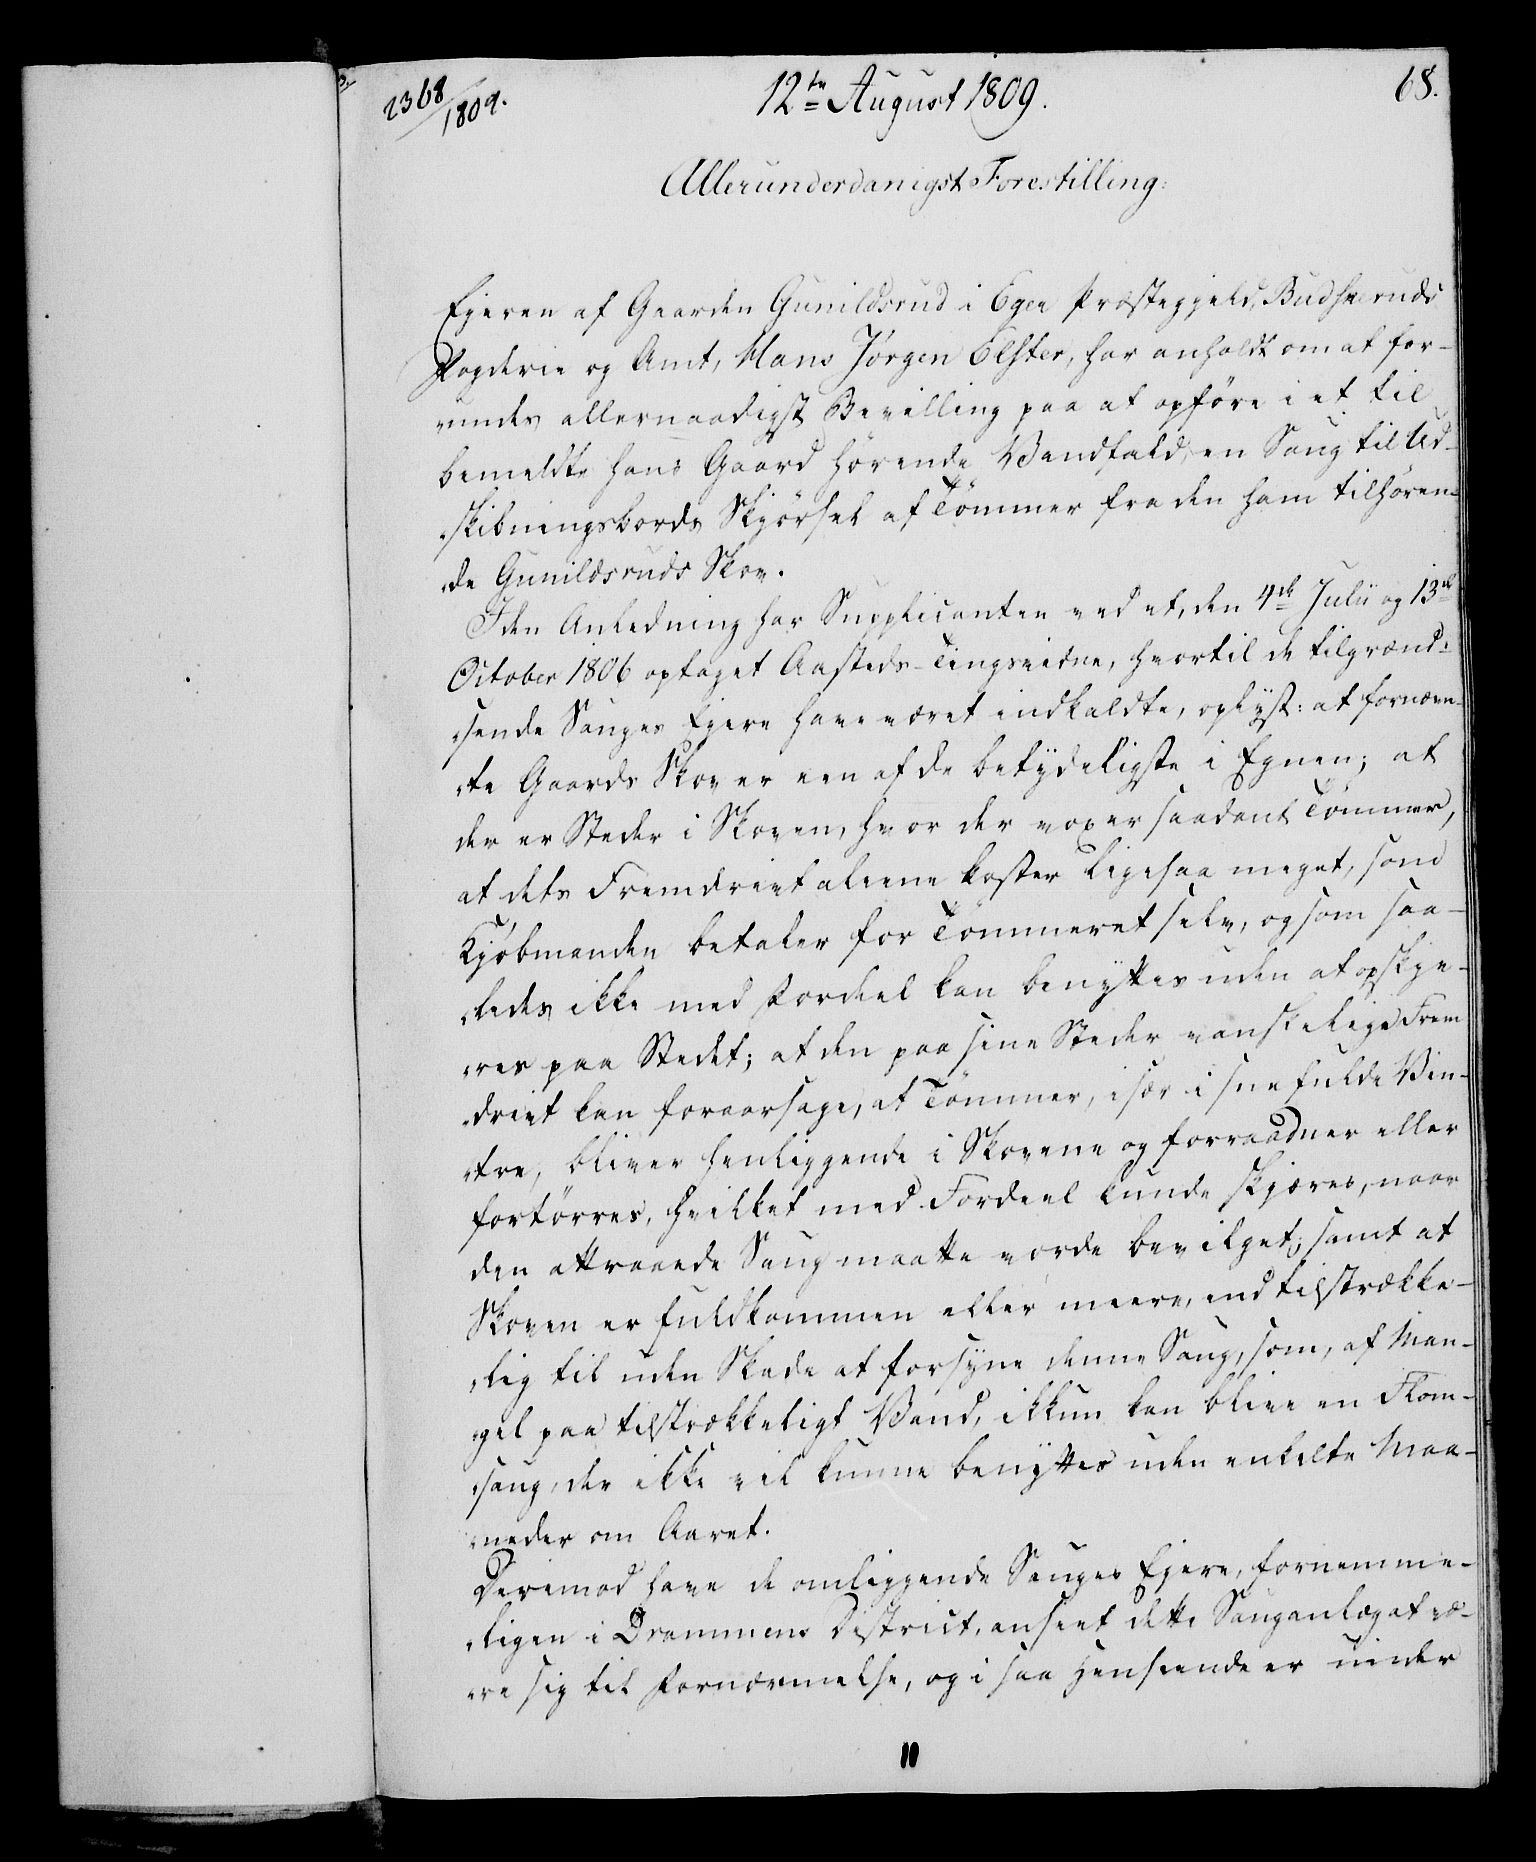 2368/1809.
12te August 1809.
68.
Allerunderdanigst Forestilling:
Ejeren af Gaarden Gunildsrud i Eger Præstegjeld, Budseruds
Fogderie og Amt, Hans Jørgen Elster, har anholdt om at for-
undes allernaadigst Bevilling paa at opföre i et til
bemeldte hans Gaard hörende Vandfald, en Saug til Ud-
skibningsbords Skjörsel af Tömmer fra den ham tilhören-
de Gunildsruds Skov.
I den Anledning har Supplicanten ved et, den 4de Julii og 13de
October 1806 optaget Aasteds-Tingsvidne, hvortil de tilgrænd-
sende Sauges Ejere have været indkaldte, oplyst: at fornævn-
te Gaards Skov er een af de betydeligste i Egnen; at
der er Steder i Skoven, hvor der voxer saadant Tömmer,
at dets Fremdrivt aleene koster ligesaa meget, som
Kjöbmanden betaler for Tömmeret selv, og som saa-
ledes ikke med Fordeel kan benyttes uden at opskjæ-
res paa Stedet; at den paa sine Steder vanskelige Frem-
drivt kan foraarsage, at Tömmer, især i sneefulde Vin-
tre, bliver henliggende i Skovene og forraadner eller
fortörres, hvilket med Fordeel kunde skjæres, naar
den attraaede Saug maatte vorde bevilget; samt at
Skoven er fuldkommen eller meere, end tilstrække-
lig til uden Skade at forsyne denne Saug, som, af Man-
gel paa tilstrækkeligt Vand, ikkun kan blive en Flom-
saug, der ikke vil kunne benyttes uden enkelte Maa-
neder om Aaret.
Derimod have de omliggende Sauges Ejere, fornemme-
ligen i Drammens District, anseet dette Sauganlæg at væ-
re sig til Fornærmelse, og i saa Henseende er under